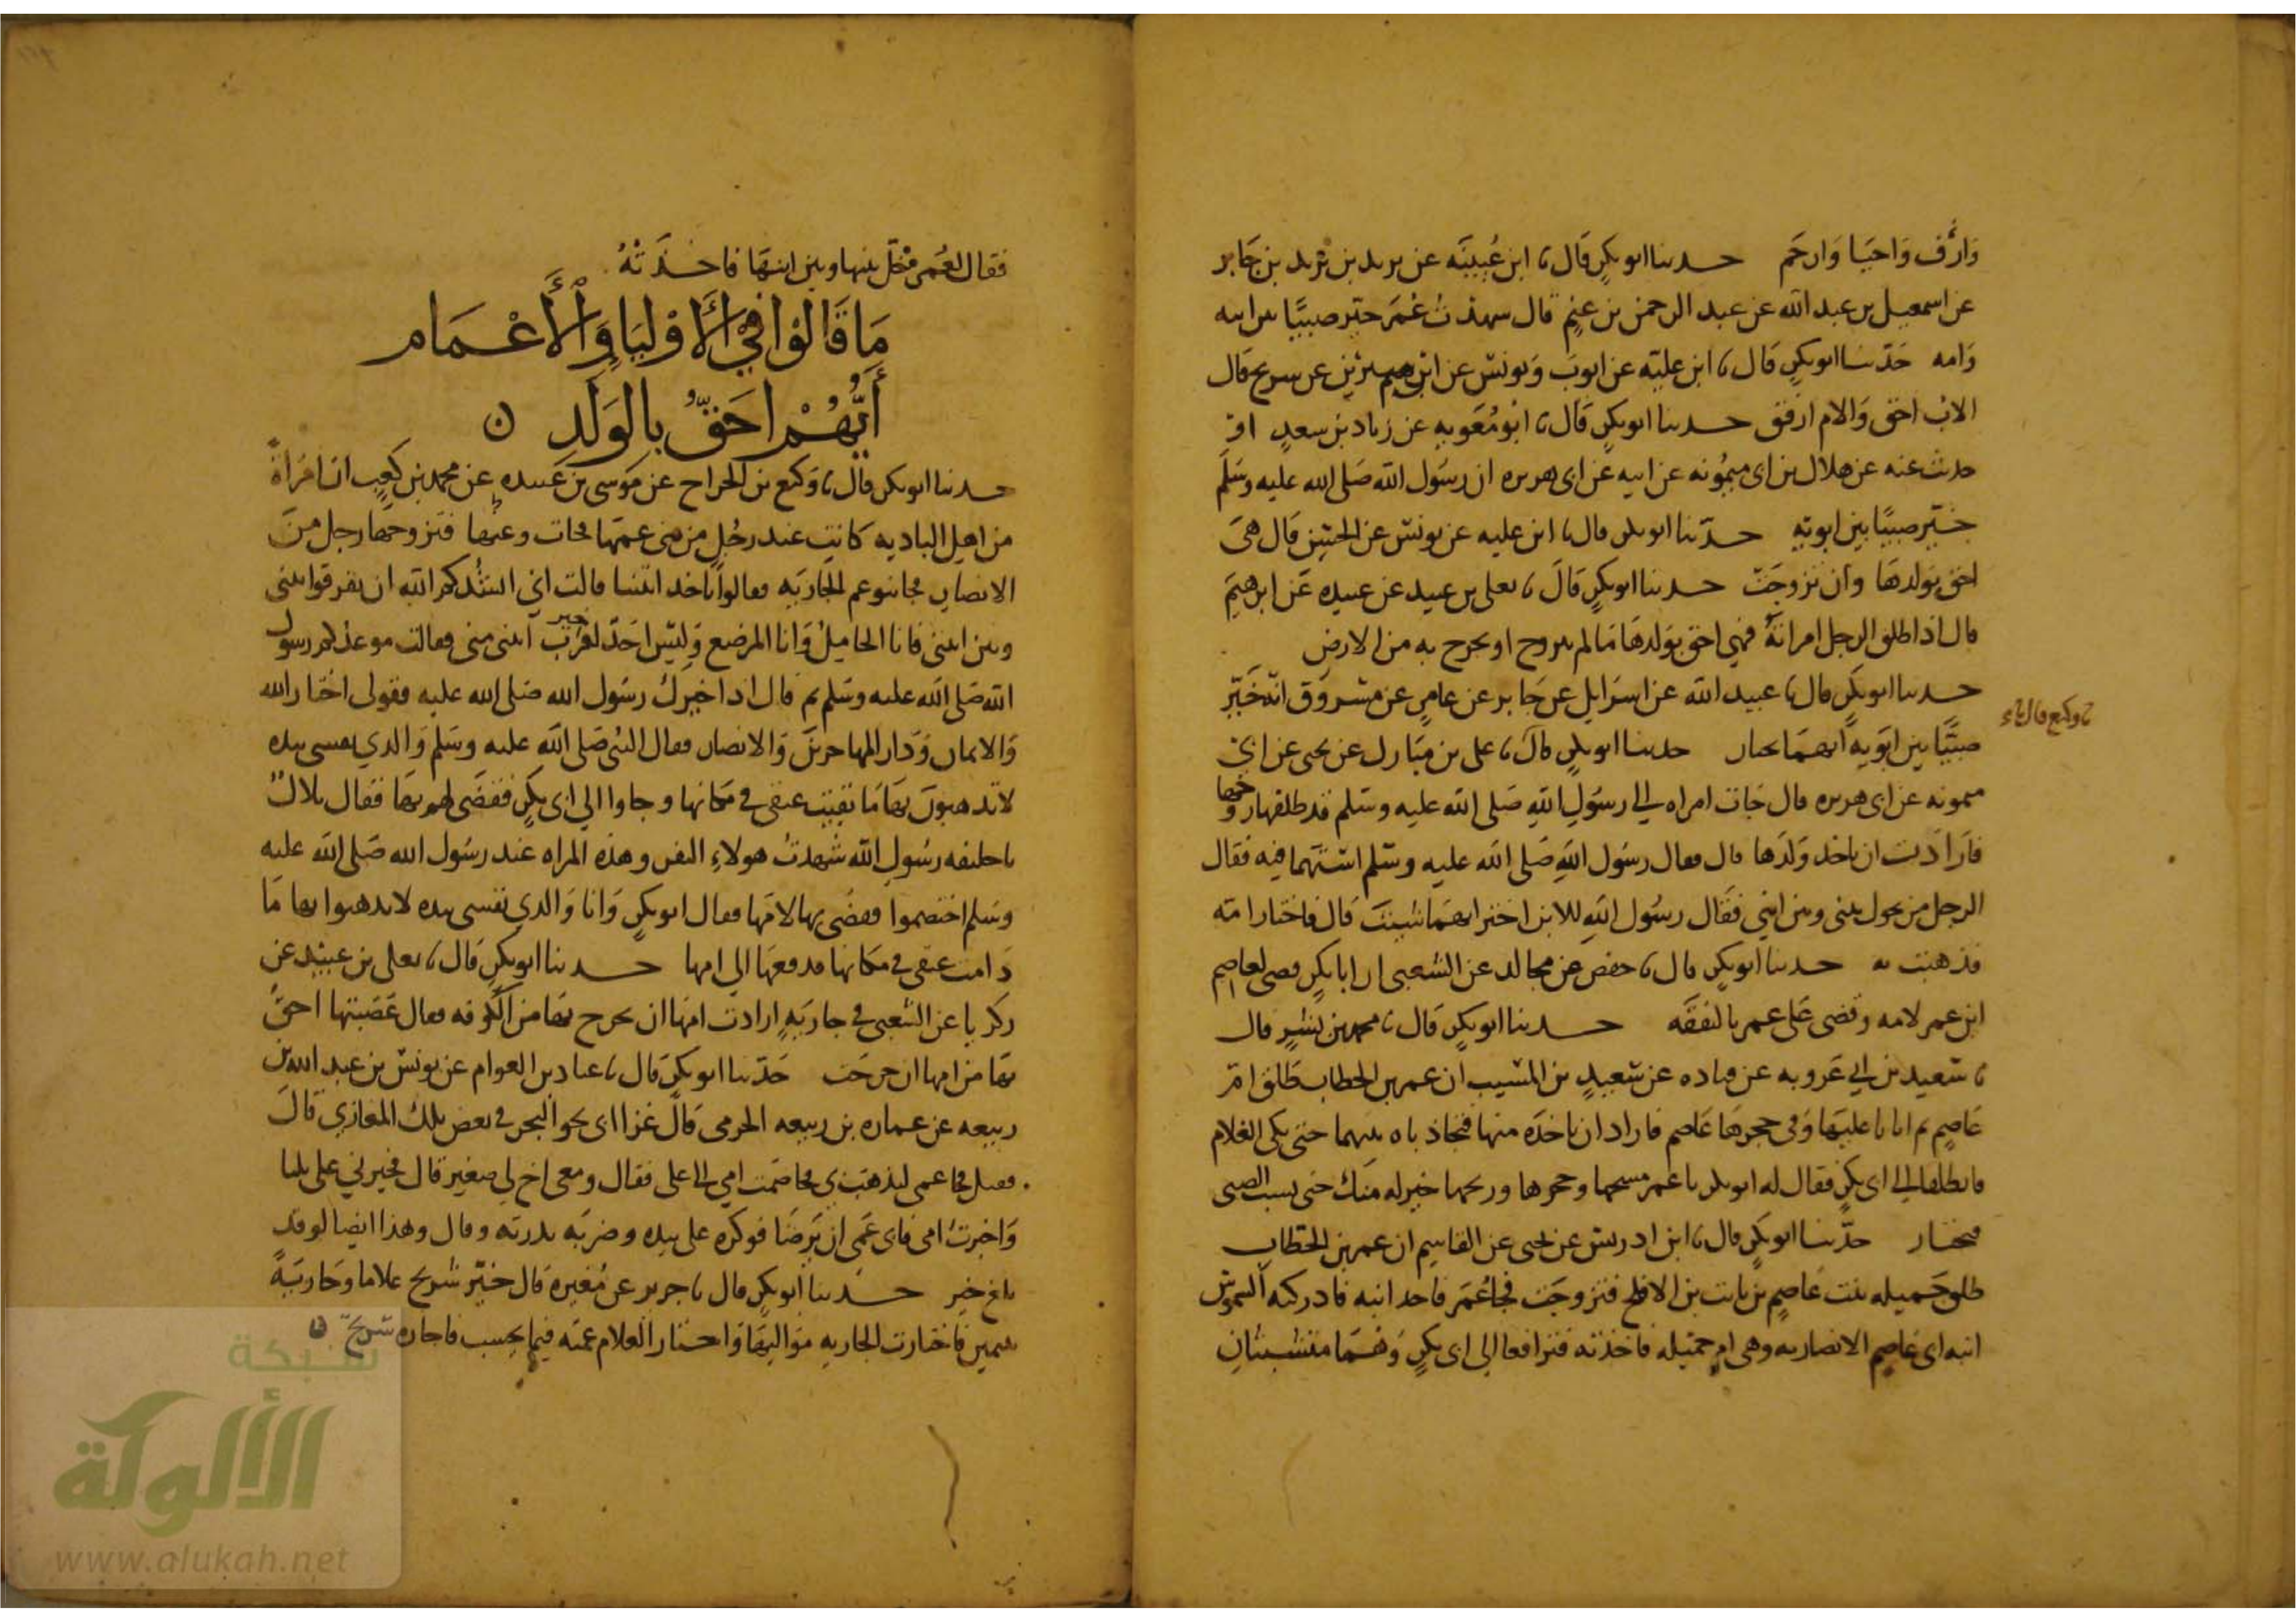 وارأف واحيا وارحم حدثنا ابو بكر قال نا ابن عيينه عن يزيد بن يزيد بن جابر
عن اسمعيل بن عبد الله عن عبد الرحمن بن غنم قال شهدت عمر خير صبيا بين ابيه
وامه حدثنا ابو بكر قال نا ابن عليه عن ايوب ويونس عن ابن سيرين عن شريح قال
الاب احق والام ارفق حدثنا ابو بكر قال نا ابو معويه عن زياد بن سعد او
حدث عنه عن هلال بن ابى ميمونه عن ابيه عن ابى هريره ان رسول الله صلى الله عليه وسلم
خير صبيا بين ابويه حدثنا ابو بكر قال نا ابن عليه عن يونس عن الحسن قال هى
احق بولدها وان تزوجت حدثنا ابو بكر قال نا يعلى بن عبيد عن عبيده عن ابرهيم
قال اذا طلق الرجل امراته فهي احق بولدها ما لم تتزوج او تخرج به من الارض
حدثنا ابو بكر قال نا عبيد الله عن اسرايل عن جابر عن عامر عن مسروق انه خير
نا وكيع قال نا
صبيا بين ابويه ايهما يختار حدثنا ابو بكر قال نا على بن مبارك عن يحيى عن ابي
ميمونه عن ابى هريره قال جات امراه الي رسول الله صلى الله عليه وسلم قد طلقها زوجها
فارادت ان تاخذ ولدها قال فقال رسول الله صلى الله عليه وسلم استهما فيه فقال
الرجل من يحول بيني وبين ابني فقال رسول الله للابن اختر ايهما شيت قال فاختار امه
فذهبت به حدثنا ابو بكر قال نا حفص عن مجالد عن الشعبى ان ابا بكر قضى لعاصم
ابن عمر لامه وقضى على عمر بالنفقه حدثنا ابو بكر قال نا محمد بن بشر قال
نا سعيد بن ابي عروبه عن قتاده عن سعيد بن المسيب ان عمر بن الخطاب طلق ام
عاصم ثم اتاها عليها وفى حجرها عاصم فاراد ان ياخذه منها فتجاذباه بينهما حتى بكى الغلام
فانطلقا الي ابى بكر فقال له ابو بكر يا عمر مسحها وحجرها وريحها خير له منك حتى يشب الصبى
فيختار حدثنا ابو بكر قال نا ابن ادريس عن يحيى عن القاسم ان عمر بن الخطاب
طلق جميله بنت عاصم بن ثابت بن الاقلح فتزوجت فجا عمر فاخذ ابنه فادركته الشموس
ابنه ابى عاصم الانصاريه وهى ام جميله فاخذته فترافعا الى ابى بكر وهما متشبثان
فقال لعمر فخل بينها وبين ابنها فاخذته
ما قالوا في الاوليا والاعمام
ايهم احق بالولد ن
حدثنا ابو بكر قال نا وكيع بن الجراح عن موسى بن عبيده عن محمد بن كعب ان امراة
من اهل الباديه كانت عند رجل من بنى عمها فمات وعنها فتزوجها رجل من
الانصار فجا بنو عم الجاريه فقالوا ناخذ ابنتنا قالت اني انشدكم الله ان تفرقوا بينى
وبين ابنتى فانا الحامل وانا المرضع وليس احد خير لقرب ابنتى منى فقالت موعدكم رسول
الله صلى الله عليه وسلم ثم قال اذا خيرك رسول الله صلى الله عليه فقولى اختار الله
والايمان ودار المهاجرين والانصار فقال النبى صلى الله عليه وسلم والذي نفسى بيده
لا تذهبون بها ما بقيت عنقى فى مكانها وجاوا الي ابى بكر فقضى لهم بها فقال بلال
يا خليفه رسول الله شهدت هولاء النفر وهذه المراه عند رسول الله صلى الله عليه
وسلم اختصموا فقضى بها لامها فقال ابو بكر وانا والذي نفسى بيده لا يذهبوا بها ما
دامت عنقى في مكانها فدفعها الي امها حدثنا ابو بكر قال نا يعلى بن عبيد عن
زكريا عن الشعبى في جاريه ارادت امها ان تخرج بها من الكوفه فقال عصبتها احق
بها من امها ان خرجت حدثنا ابو بكر قال نا عباد بن العوام عن يونس بن عبد الله بن
ربيعه عن عماره بن ربيعه الجرمى قال غزا ابى نحو البحر في بعض تلك المغازي قال
فقتل فجا عمى ليذهب بي فخاصمته امي الى على فقال ومعى اخ لي صغير قال فخيرني على ثلثا
واخترت امى فابى عمى ان يرضا فوكزه على بيده وضربه بدرته وقال وهذا ايضا لو قد
بلغ خير حدثنا ابو بكر قال نا جرير عن مغيره قال خير شريح غلاما وجاريه
يتيمين فاختارت الجاريه مواليها واختار الغلام عمته فيما يحسب فاجازه شريح ن
شبكة
الألوكة
www.alukah.net